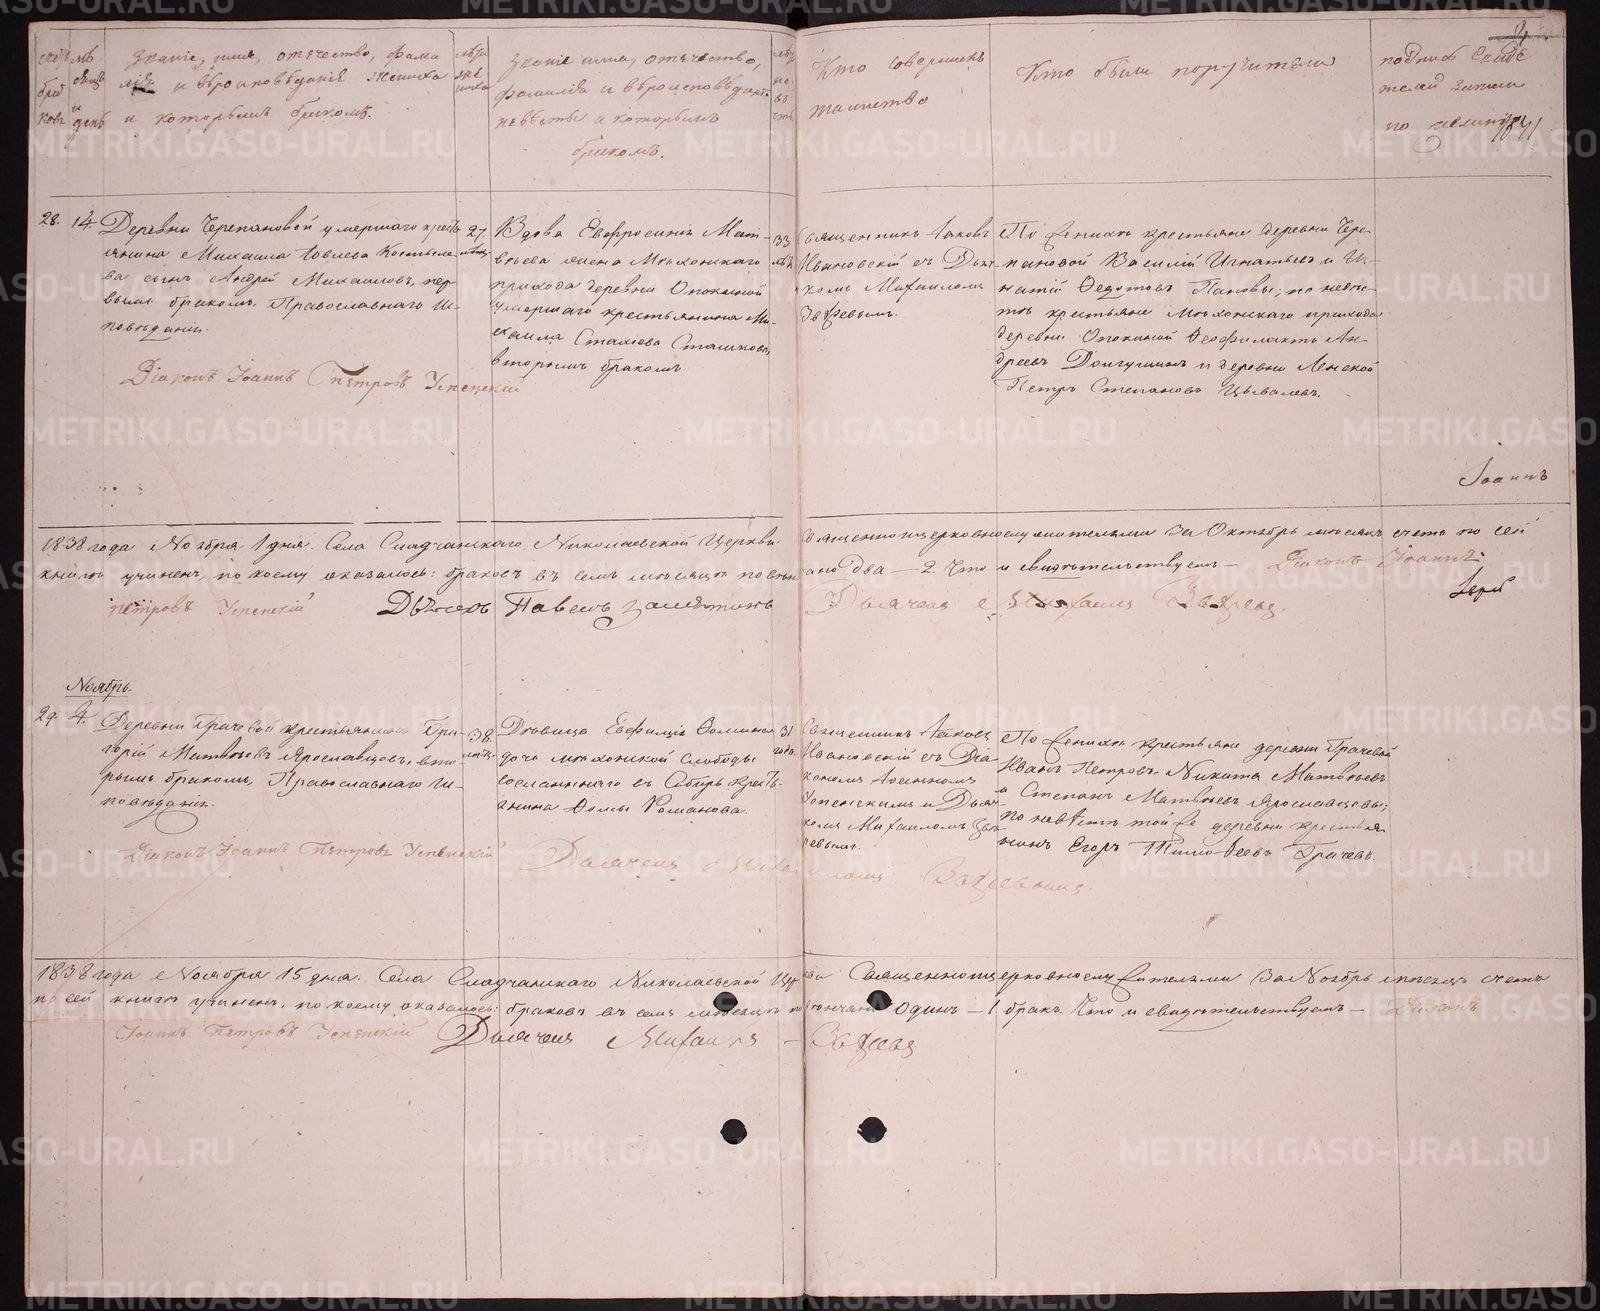 званіе, имя, отчество, фами
лія и вѣроисповѣданіе жениха
и которымъ бракомъ.
званіе имя, отчество,
фамилія и вѣроисповѣданіе
невѣсты и которымъ
бракомъ.
Кто совершилъ
таинство
Кто были поручители
подпись свидѣ
телей записи
по желанію
28. 14. Деревни Черепановой умершаго кресть
янина Михаила
сынъ Андрей Михаиловъ, пер
вымъ бракомъ, Православнаго И-
повѣданія.
Діаконъ Іоаннъ Петровъ Успенскій
27.
Вдова Евфросинія Мат-
вѣева жена Мѣхонскаго
прихода деревни
умершаго крестьянина Ми-
хаила
вторымъ бракомъ.
33
Священникъ Іаковъ
Ивановскій съ Дьяч-
комъ Михаиломъ
По женихѣ крестьяне деревни Чере-
пановой Василій Игнатьевъ и Иг-
натій Федотовъ Пановы; по невѣс-
тѣ крестьяне Мѣхонскаго прихода
деревни Феофилактъ Ан-
дреевъ и деревни
Петръ Степановъ
Іоаннъ
1838 года Ноября 1 дня. Села Смолчанскаго Николаевской Церкви Священноцерковнослужителями За Октябрь мѣсяцъ счетъ по сей
книгѣ учиненъ, по коему оказалось: браковъ въ семъ мѣсяцѣ повѣнчано два — 2 Что и свидѣтельствуемъ — Діаконъ Іоаннъ
Петровъ Успенскій Дьячекъ Павелъ Дьячекъ Михаилъ
Ноябрь.
29. 4. Деревни Грачевой крестьянинъ Гри-
горій Матвѣевъ Ярославцовъ, вто-
рымъ бракомъ, Православнаго И-
повѣданія.
Діаконъ Іоаннъ Петровъ Успенскій
38.
Дѣвица Ефимія Фомина
дочь Мѣхонской слободы
сосланнаго въ Сибирь кресть-
янина Фомы Романова.
31
года.
Священникъ Іаковъ
Ивановскій съ Діа-
кономъ Іоанномъ
Успенскимъ и Дьяч-
комъ Михаиломъ
По женихѣ крестьяне деревни Грачевой
Иванъ Петровъ, Никита Матвѣевъ
и Степанъ Матвѣевъ Ярославцовы;
по невѣстѣ той же деревни крестья
нинъ Егоръ Тимофеевъ Грачевъ.
1838 года Ноября 15 дня. Села Смолчанскаго Николаевской Церкви Священноцерковнослужителями За Ноябрь мѣсяцъ счетъ
по сей книгѣ учиненъ, по коему оказалось: браковъ въ семъ мѣсяцѣ повѣнчано одинъ — 1 бракъ. Что и свидѣтельствуемъ — Діаконъ
Іоаннъ Петровъ Успенскій Дьячекъ Михаилъ
METRIKI.GASO-URAL.RU